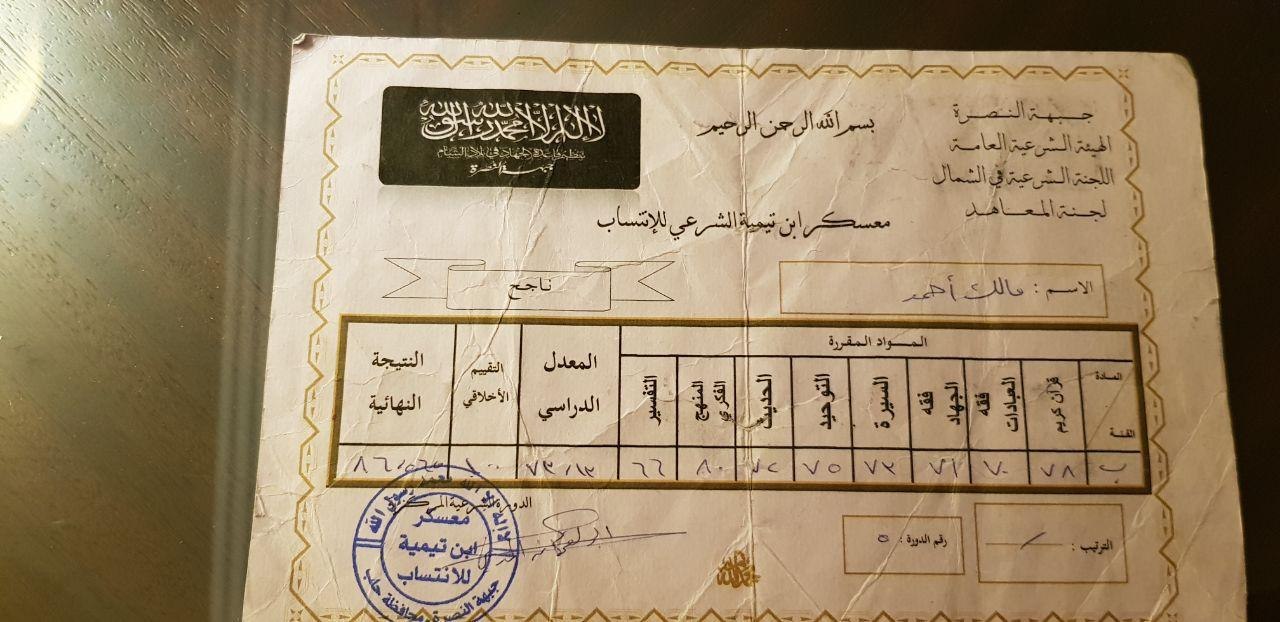 جبهة النصرة
الهيئة الشرعية العامة
اللجنة الشرعية في الشمال
لجنة المعاهد
بسم الله الرحمن الرحيم
لا إله إلا الله محمد رسول الله
تنظيم قاعدة الجهاد في بلاد الشام
جبهة النصرة
معسكر ابن تيمية الشرعي للإنتساب
الاسم : مالك أحمد
ناجح
المواد المقررة
المادة
الفئة
قرآن كريم
فقه العبادات
فقه الجهاد
السيرة
التوحيد
الحديث
المنهج الفكري
التفسير
المعدل الدراسي
التقييم الأخلاقي
النتيجة النهائية
ب ٧٨ ٧٠ ٧١ ٧٣ ٧٥ ٧٢ ٨٠ ٦٦ ٧٣/١٣ ١٠٠
الترتيب :
رقم الدورة : ٥
الدورة الشرعية
لا إله إلا الله محمد رسول الله
معسكر
ابن تيمية
للانتساب
جبهة النصرة محافظة حلب